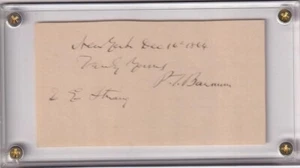 New York Dec 16 1864
Truly Yours
P. T. Barnum
E. E. Strong